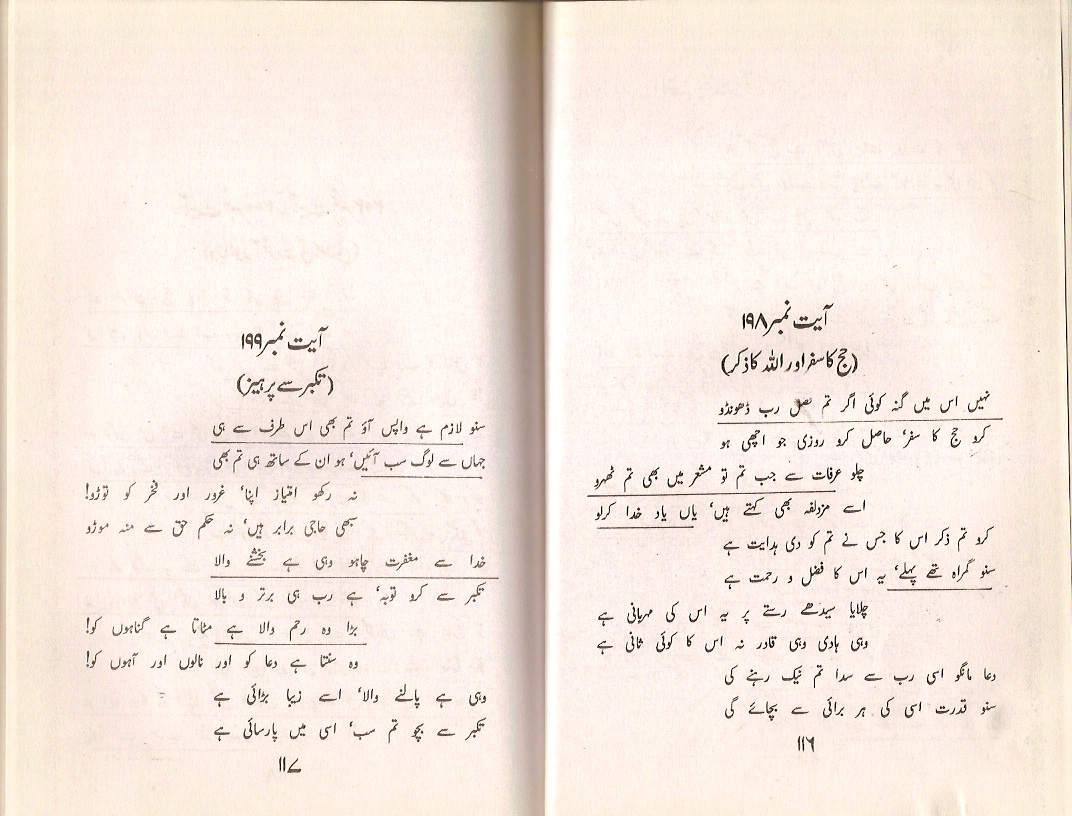 آیت نمبر ۱۹۸
(حج کا سفر اور اللہ کا ذکر)
نہیں اس میں گنہ کوئی اگر تم فضل رب ڈھونڈو
کرو حج کا سفر‘ حاصل کرو روزی جو اچھی ہو
چلو عرفات سے جب تم تو مشعر میں بھی تم ٹھہرو
اسے مزدلفہ بھی کہتے ہیں‘ یاں یاد خدا کرلو
کرو تم ذکر اس کا جس نے تم کو دی ہدایت ہے
سنو گمراہ تھے پہلے‘ یہ اس کا فضل و رحمت ہے
چلایا سیدھے رستے پر یہ اس کی مہربانی ہے
وہی ہادی وہی قادر نہ اس کا کوئی ثانی ہے
دعا مانگو اسی رب سے سدا تم نیک رہنے کی
سنو قدرت اسی کی ہر برائی سے بچائے گی
۱۱۶
آیت نمبر ۱۹۹
(تکبر سے پرہیز)
سنو لازم ہے واپس آؤ تم بھی اس طرف سے ہی
جہاں سے لوگ سب آئیں‘ ہو ان کے ساتھ ہی تم بھی
نہ رکھو امتیاز اپنا‘ غرور اور فخر کو توڑو!
سبھی حاجی برابر ہیں‘ نہ حکم حق سے منہ موڑو
خدا سے مغفرت چاہو وہی ہے بخشنے والا
تکبر سے کرو توبہ‘ ہے رب ہی برتر و بالا
بڑا وہ رحم والا ہے مٹاتا ہے گناہوں کو!
وہ سنتا ہے دعا کو اور نالوں اور آہوں کو!
وہی ہے پالنے والا‘ اسے زیبا بڑائی ہے
تکبر سے بچو تم سب‘ اسی میں پارسائی ہے
۱۱۷